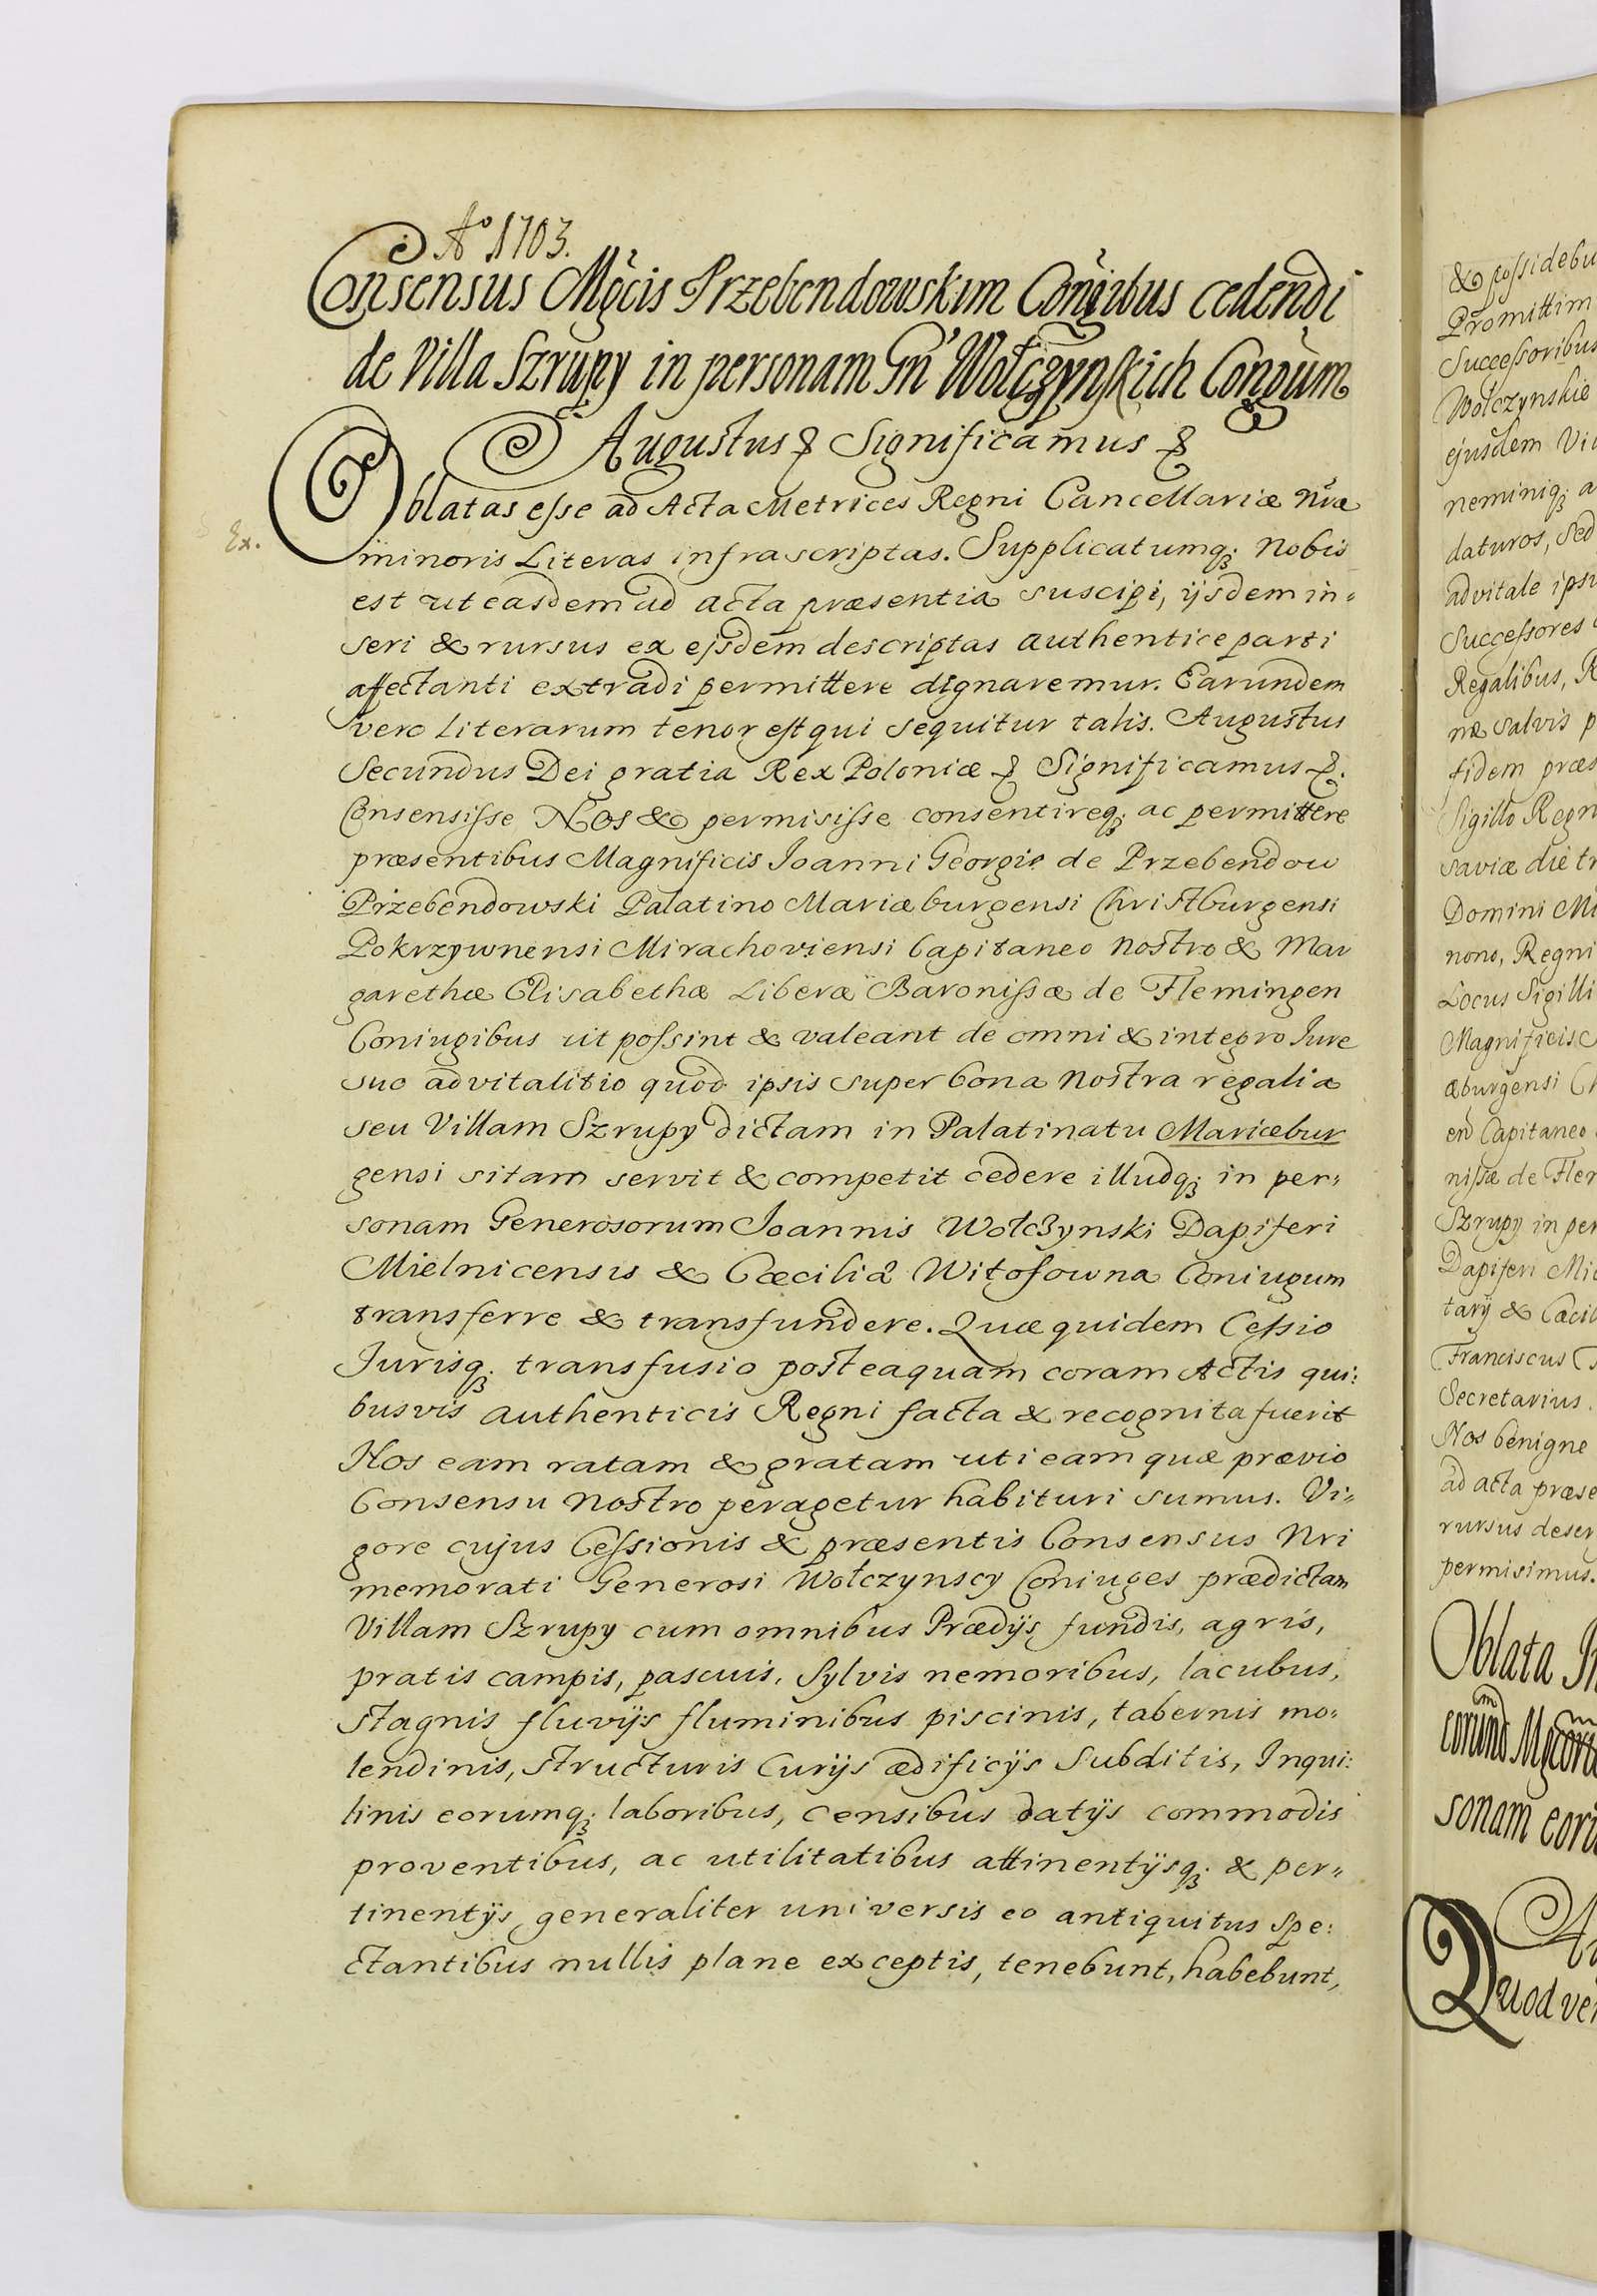 Aº 1703.
Consensus Mgcis Przebendowskim Coniugibus cedendi
de Villa Szrupy in personam Gn Wołczynskich Coniugum
Augustus & Significamus &
Oblatas esse ad Acta Metrices Regni Cancellariæ nræ
Ex.
minoris Literas infrascriptas. Supplicatumq; nobis
est ut easdem ad acta præsentia suscipi, ijsdem in=
seri & rursus ex ejsdem descriptas authentice parti
affectanti extradi permittere dignaremur. Earundem
vero literarum tenor est qui sequitur talis. Augustus
Secundus Dei gratia Rex Poloniæ & Significamus &.
Consensisse Nos & permisisse consentireq; ac permittere
præsentibus Magnificis Ioanni Georgio de Przebendow
Przebendowski Palatino Mariæburgensi Christburgensi
Pokrzywnensi Mirachoviensi Capitaneo nostro & Mar
garethæ Elisabethæ Liberæ Baronissæ de Flemingen
Coniugibus ut possint & valeant de omni & integro Iure
suo advitalitio quod ipsis super bona nostra regalia
seu Villam Szrupy dictam in Palatinatu Mariæbur
gensi sitam servit & competit cedere illudq; in per=
sonam Generosorum Joannis Wołczynski Dapiferi
Mielnicensis & Cæciliæ Witosowna Coniugum
transferre & transfundere. Quæ quidem Cessio
Jurisq; transfusio posteaquam coram Actis qui:
busvis authenticis Regni facta & recognita fuerit
Nos eam ratam & gratam uti eam quæ prævio
Consensu nostro peragetur habituri sumus. Vi=
gore cujus Cessionis & præsentis Consensus Nri
memorati Generosi Wołczynscy Coniuges prædictam
Villam Szrupy cum omnibus Prædijs fundis, agris,
pratis campis, pascuis, sylvis nemoribus, lacubus,
stagnis fluvijs fluminibus piscinis, tabernis mo=
lendinis, structuris Curijs ædificijs Subditis, Inqui:
linis eorumq; laboribus, censibus datijs commodis
proventibus, ac utilitatibus attinentijsq; & per=
tinentijs generaliter universis eo antiquitus spe:
ctantibus nullis plane exceptis, tenebunt, habebunt,
& possidebu
Promittim
Successoribus
Wołczynskie
ejusdem Vi
neminiq; a
daturos, sed
advitale ips
Successores
Regalibus, R
næ salvis p
fidem præs
Sigillo Regn
saviæ die tr
Domini Mi
nono, Regni
Locus Sigilli
Magnificis
æburgensi Ch
en Capitaneo
nissæ de Fler
Szrupy in per
Dapiferi Mi
tarÿ & Cæcil
Franciscus
Secretarius.
Nos benigne
ad acta præse
rursus descr
permisimus.
Oblata
eorund Mgcoru
sonam eoru
Au
Quod ve